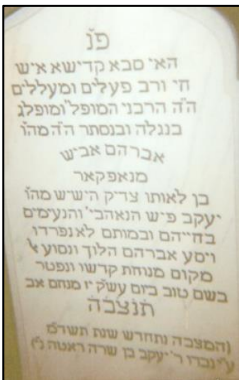 פ״נ
האי סבא קדישא איש
חי ורב פעלים ומעללים
ה״ה הרבני המופל׳ ומופלג
בנגלה ובנסתר ה״ה מהו׳
אברהם אביש
מנאפקאר
בן לאותו צדיק הישיש מהו׳
יעקב פיש הנאהבי׳ והנעימים
בחייהם ובמותם לא נפרדו
ויסע אברהם הלוך ונסוע
מקום מנוחת קדשו ונפטר
בשם טוב ביום עש״ק י״ז מנחם אב
תנצבה
(והמצבה נתחדש שנת תשד״מ
ע״י נכדו ר׳ יעקב בן שרה ראטה נ״י)